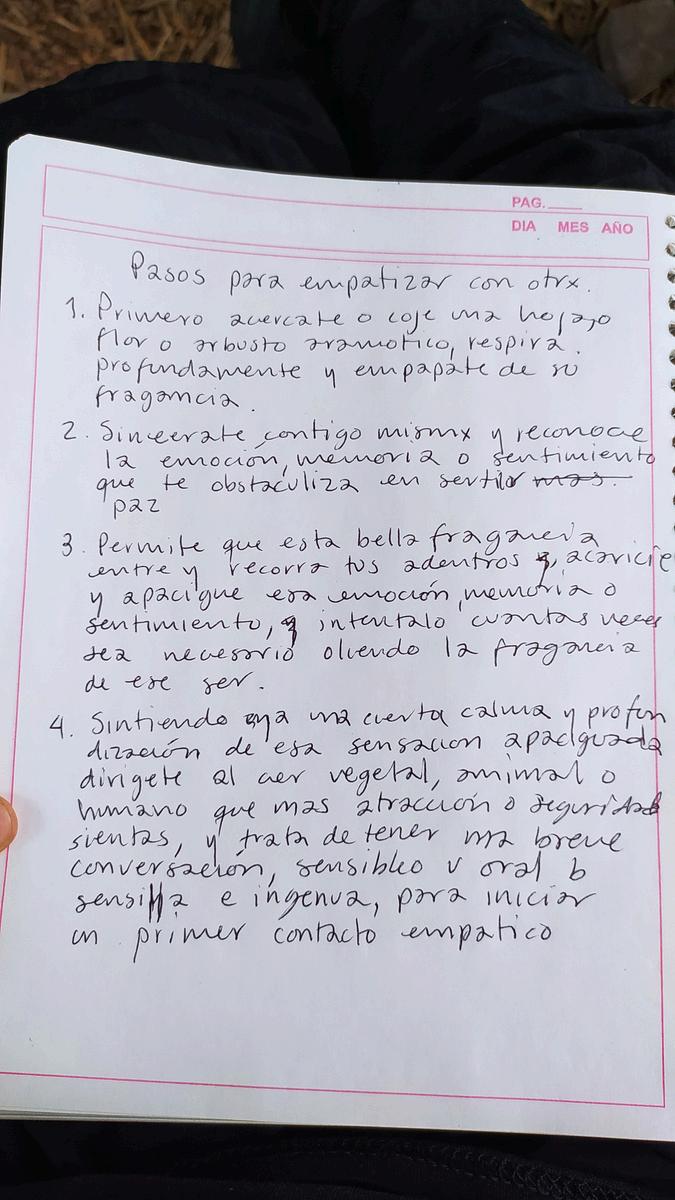 PAG.
DIA MES AÑO
Pasos para empatizar con otrx.
1. Primero acercate o coje una hoja, o
flor o arbusto aramotico, respira.
profundamente y empapate de su
fragancia.
2. Sincerate contigo mismx y reconoce
la emoción, memoria o sentimiento
que te obstaculiza en sentir mas.
paz
3. Permite que esta bella fragancia
entre y recorra tus adentros y, acaricie
y apacigue esa emoción, memoria o
sentimiento, y intentalo cuantas veces
sea necesario oliendo la fragancia
de ese ser.
4. Sintiendo ya una cierta calma y profun
dización de esa sensacion apaciguada
dirigete al ser vegetal, animal o
humano que mas atracción o seguridad
sientas, y trata de tener una breve
conversación, sensible o oral
sensilla e ingenua, para iniciar
un primer contacto empatico